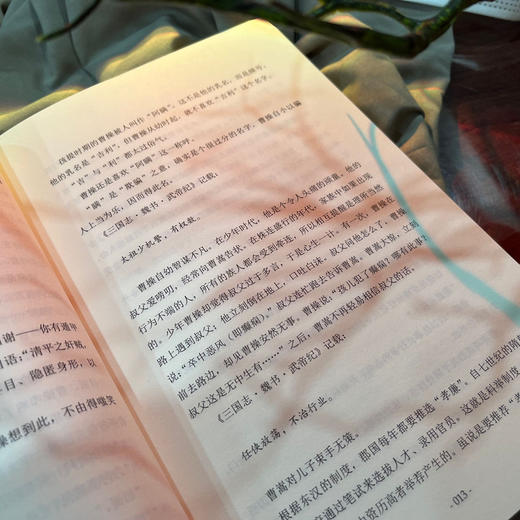 孩提时期的曹操被人叫作“阿瞒”。这不是他的乳名，而是绰号。
他的乳名是“吉利”。但曹操从幼时起，就不喜欢“吉利”这个名字。
“吉”与“利”都太过俗气。
曹操还是喜欢“阿瞒”这一称呼。
“瞒”是“欺骗”之意，确实是个很过分的名字，曹操自小以骗
人上当为乐，因而得此名。
《三国志·魏书·武帝纪》记载：
太祖少机警，有权数。
曹操自幼智谋不凡，在少年时代，他是个令人头痛的顽童。他的
叔父爱唠叨，经常向曹嵩告状。在株连盛行的年代，家族中如果出现
行为不端的人，所有的族人都会受到牵连，所以相互提醒是理所当然
的。少年曹操却觉得叔父过于多言，于是心生一计。有一次，曹操在
路上遇到叔父：他立刻倒在地上，口吐白沫，叔父问他怎么了，曹操
说：“卒中恶风（即癫痫）。”叔父连忙跑去告诉曹嵩，曹嵩大惊，立刻
前去路边，却见曹操安然无事。曹操说：“孩儿犯了癫痫？哪有此事？
叔父这是无中生有……”之后，曹嵩不再轻易相信叔父的话。
《三国志·魏书·武帝纪》记载：
任侠放荡，不治行业。
曹嵩对儿子束手无策。
根据东汉的制度，郡国每年都要推选“孝廉”。自七世纪的隋
通过笔试来选拔人才、录用官员。这就是科举制度
资历高者举荐产生的。虽说是要推荐“孝
- 013 -
谢——你有通
语：“清平之奸贼，
目、隐匿身形，以
操想到此，不由得嗤笑